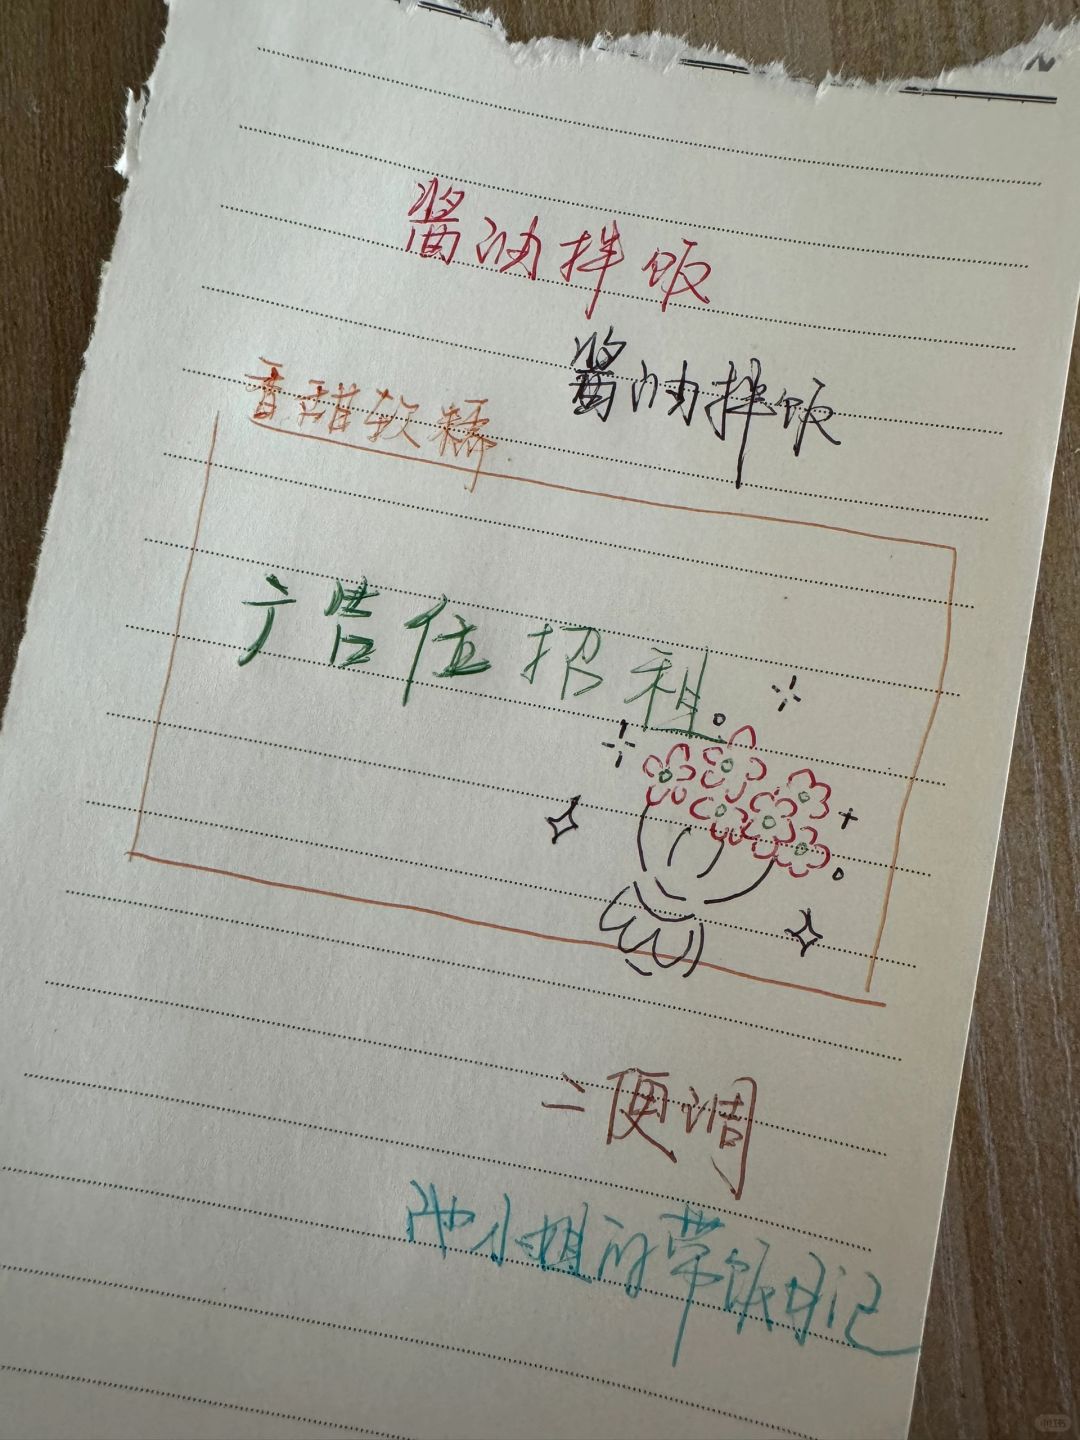 酱油拌饭
酱油拌饭
香甜软糯
广告位招租
二便调
池小姐的带饭日记
小红书